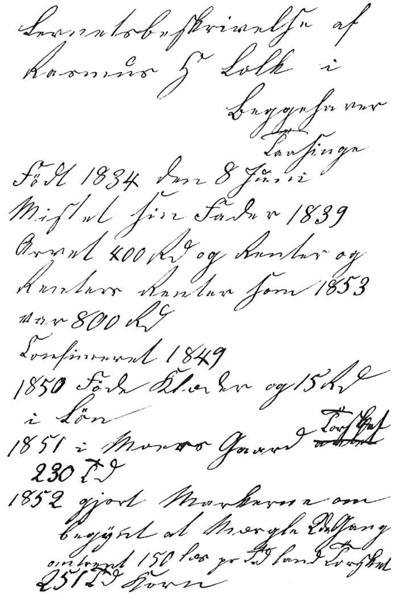 Levnetsbeskrivelse af
Rasmus H Lolk i
Beggehaver
Taasinge
Født 1834 den 8 Juni
Mistet sin Fader 1839
Arvet 400 Rd og Renter og
Renters Renter som 1853
var 800 Rd
Confirmeret 1849
1850 Føde Klæder og 15 Rd
i Løn
1851 i Moers Gaard Torsket
230 Td
1852 gjort Markerne om
begÿnt at Mergle 2de Gang
omtrent 150 læs pr Td land Torsket
251 Td Korn